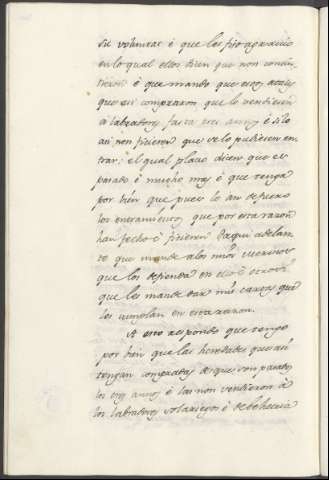 su voluntat é que les fizo agravicio
en lo qual ellos dicen que non consin-
tieron é que mando que estos atales
que asi compraron que lo vendiesen
á labradores fasta tres annos é si lo
asi non ficieren que se lo pudiesen en-
trar: el qual plazo dicen que es
pasado é mucho mas é que tenga
por bien que pues lo an de fuero
los entramientos que por esta razon
han fecho é ficieren daqui adelan-
te que mande a los mios
que los defiendan en ello é otrosi
que les mande dar mis cartas que
los cumplan en esta razon.
A esto respondo que tengo
por bien que las heredades que asi
tengan compradas de que son pasados
los tres annos é las non vendieron á
los labradores solariegos é de behetria